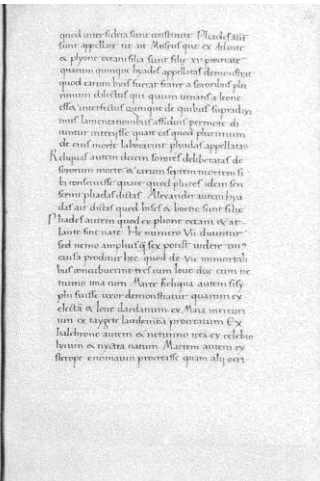 quod inter sidera sunt constitute Phiadas aut
sunt appellate ut ait Museus que ex Atlante
& plyone oceani filia sunt filie xv procreate
quarum quinque hyades appellatas demonstrat
quod earum hyas fuerat frater a sororibus plu
rimum dilectus qui quum uenans a leone
esset interfectus quinque de quibus supradixi
mus lamentationibus assiduis permote di
cuntur interisse quare eas quod plurimum
de eius morte laborarent hyadas appellatas
Reliquas autem decem sorores deliberatas de
sororum morte & earum septem mortem si
bi consciuisse quare quod plures idem sen
serint pliadas dictas Alexander autem hya
das ait dictas quod hyes & boetie sunt filie
Phiades autem quod ex plione oceani & at
lante sint nate He numero vii dicuntur
sed nemo amplius quam sex potest uidere
causa proditur hec quod de vii inmortali
bus concubuerint tres cum Ioue due cum ne
tunno una cum Marte Reliqua autem sisy
phi fuisse uxor demonstratur quarum ex
electa & Ioue dardanum ex Maia mercuri
um ex taygete lacedemona procreatum Ex
halchione autem & netunno irea ex celebio
lycum & nycteа natum Martem autem ex
sterope enomaum procreasse quam alii oeni